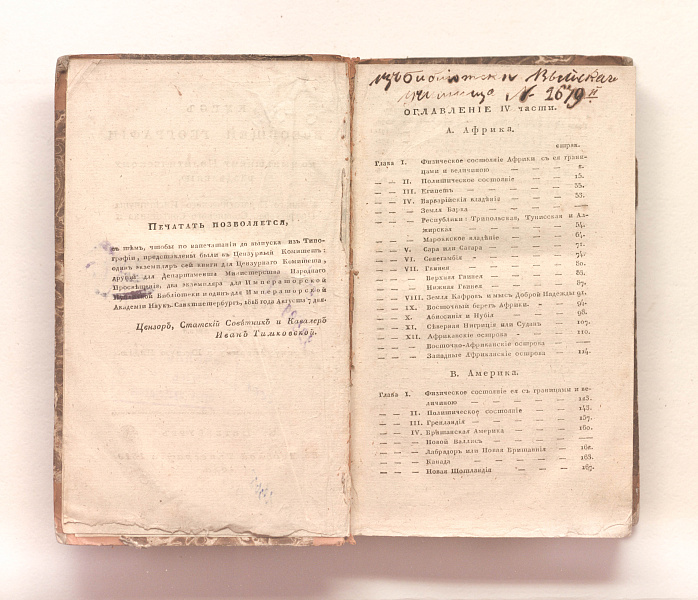 Печатать позволяется,
съ тѣмъ, чтобы по напечатаніи до выпуска изъ Типо-
графіи, представлены были въ Цензурный Комитетъ:
одинъ экземпляръ сей книги для Цензурнаго Комитета,
другой для Департамента Министерства Народнаго
Просвѣщенія, два экземпляра для Императорской
Библіотеки и одинъ для Императорской
Академіи Наукъ. Санктпетербургъ, 1818 года Августа 7 дня.
Цензоръ, Статскій Совѣтникъ и Кавалеръ
Иванъ Тимковскій.
изъ библіотеки Выйскаго
училища № 2679
ОГЛАВЛЕНІЕ IV части.
А. Африка.
стран.
Глава I. Физическое состояніе Африки съ ея грани-
цами и величиною — — — —
— — II. Политическое состояніе — — — 15.
— — III. Египетъ — — — — — 33.
— — IV. Варварійскія владѣнія — — — 53.
— — — Земля Барка — — — — —
— — — Республики: Трипольская, Тунисская и Ал-
жирская — — — — — 54.
— — — Марокское владѣніе — — — 64.
— — V. Сара или Сагара — — — — 71.
— — VI. Сенегамбія — — — — 74.
— — VII. Гвинея — — — — — 80.
— — — Верхняя Гвинея — — — —
— — — Нижняя Гвинея — — — — 87.
— — VIII. Земля Кафровъ и мысъ Доброй Надежды 91.
— — IX. Восточный берегъ Африки — — — 94.
— — X. Абиссинія и Нубія — — — 98.
— — XI. Сѣверная Нигриція или Суданъ — — 107.
— — XII. Африканскіе острова — — — 110.
— — — Восточно-Африканскіе острова — —
— — — Западные Африканскіе острова — — 114.
В. Америка.
Глава I. Физическое состояніе ея съ границами и ве-
личиною — — — — — 123.
— — II. Политическое состояніе — — — 143.
— — III. Гренландія — — — — — 157.
— — IV. Британская Америка — — — 160.
— — — Новой Валлисъ — — — —
— — — Лабрадоръ или Новая Британнія — — 162.
— — — Канада — — — — — 163.
— — — Новая Шотландія — — — 167.